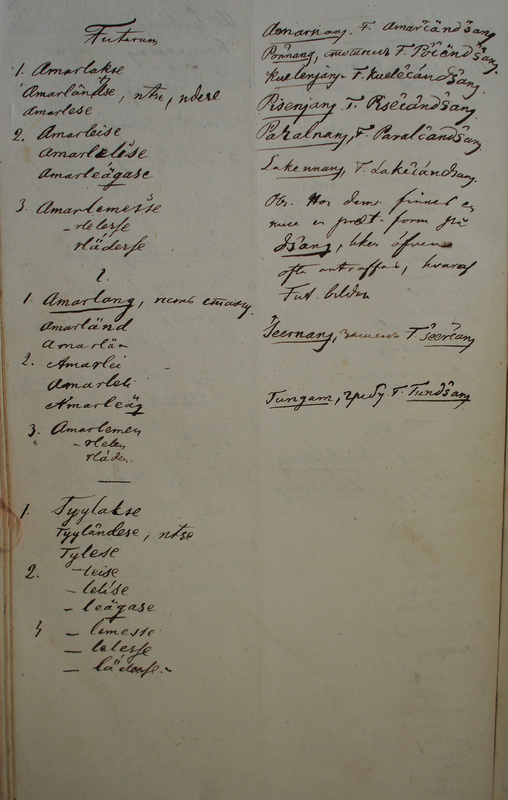 Futurum
1. Amarlakse
Amarländse, ntse, ndese
Amarlese
2. Amarleise
Amarleĺse
Amarleägase
3. Amarlemesse
– rlelesse
rläderse
2.
1. Amarlang,
Amarländ
Amarlä
2. Amarlei
Amarleli
Amarleäg
3. Amarlemen
– rlelen
rläden.
1. Tyylakse
Tyyländese, ntse
Tylese
2. – leise
– lelise
– leägase
3 – lemesse
– lelesse
– läderse
Amarnang. F. Amarcandsang
Ponnang, F. Pocandsang.
Kuelenjang. F. Kuelecandsang.
Risenjang. F. Risecandsang.
Paralnang, F. Paralcandsang
Lakennang, F. Lakecandsang.
Obs. Hos dem finnes en
en præt. form på
dsang, äfven
ofta antraffas, hvaraf
Fut. bildas
Seernang, F. seercang
Tungam, гребу F. Tundsang